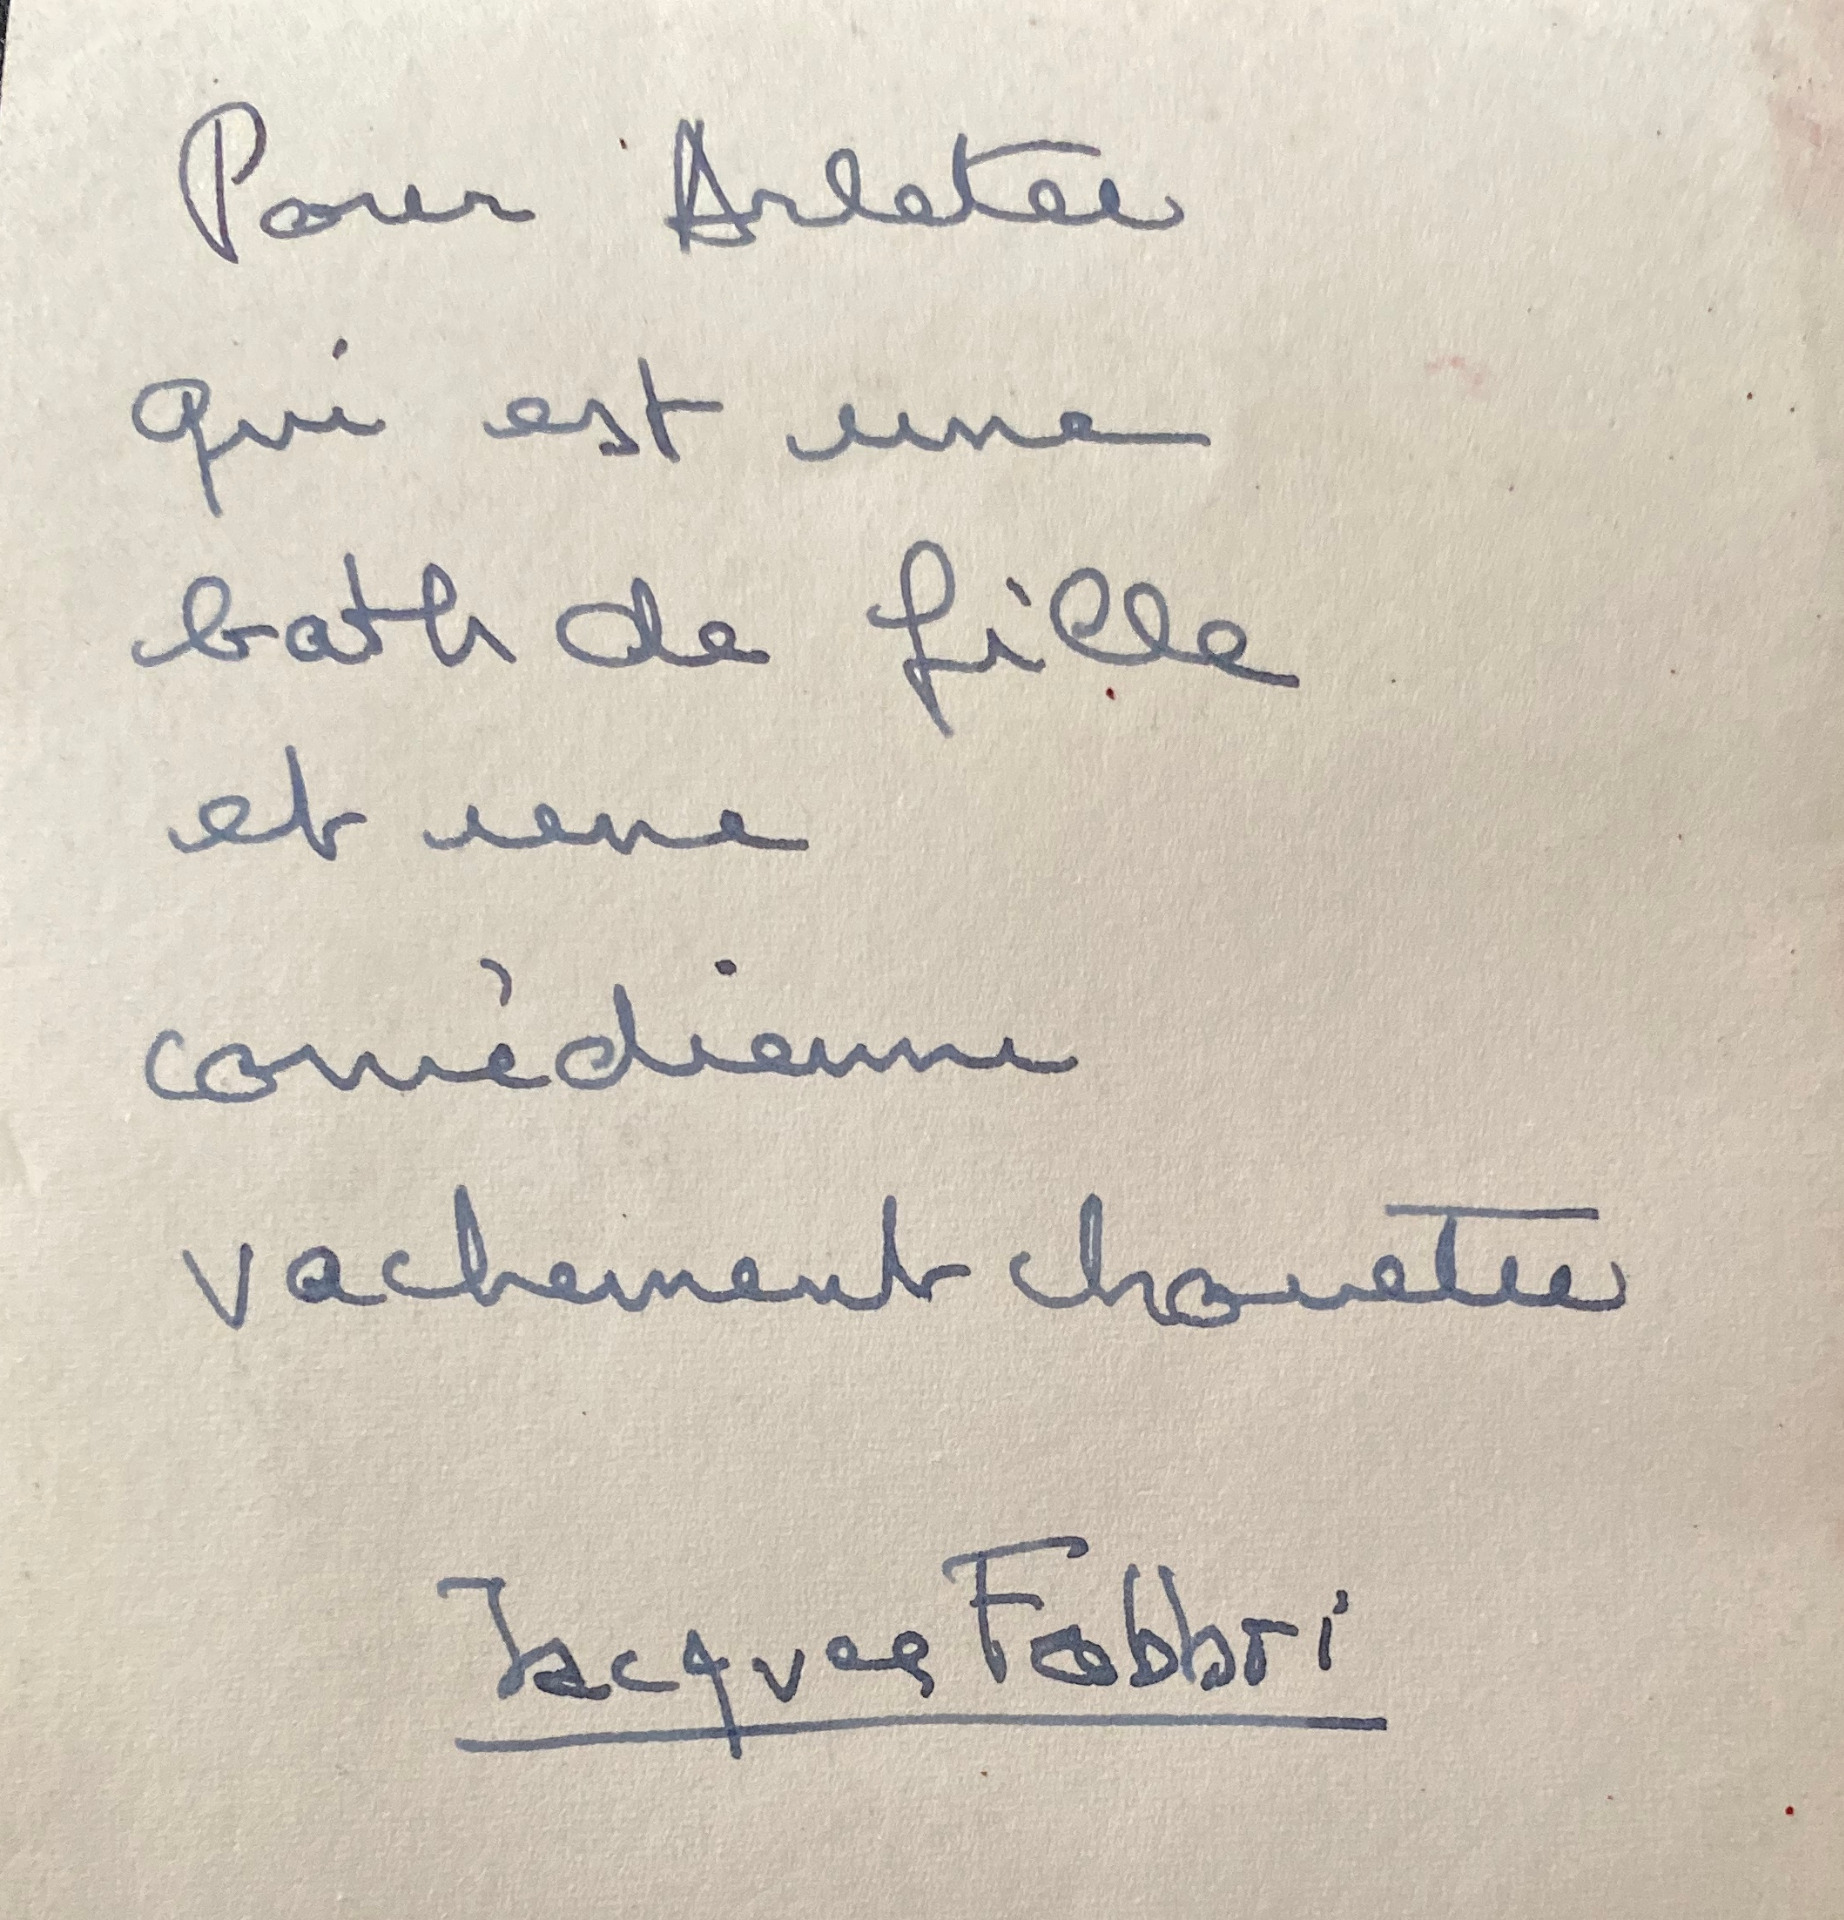 Pour Arlette
qui est une
bath de fille
et une
comédienne
vachement chouette
Jacques Fabbri